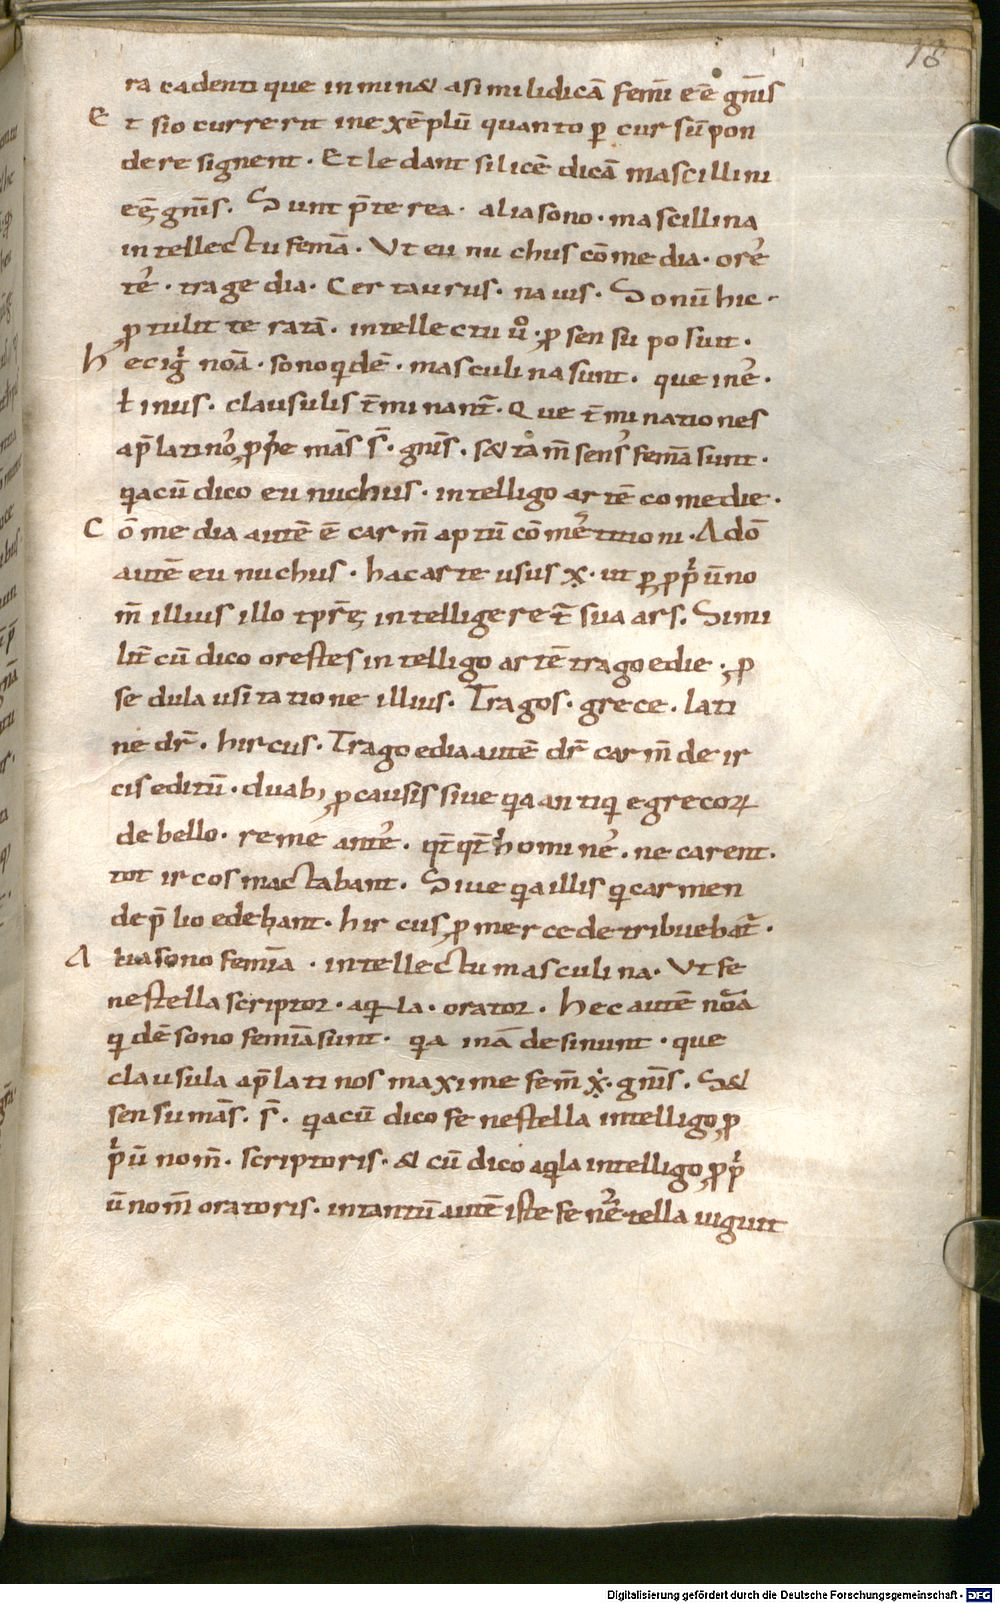 18
ra cadenti que in min& asimilidicā femī eē gn̄is
Et sio currerit inexēplū quanto ꝑ cursū pon
dere signent. Et ledant silicē dicā mascillini
eē gn̄is. Sunt p̄terea. alia sono. mascillina
intellectu femā. Vt eunuchus cōmedia. ore
te. tragedia. Certaurus. nauis. Sonū hic.
ꝓtulit te ratā. intellectu ů. ꝓ sensu posuit.
hec igr̄ noā. sono qidē. masculina sunt. que in
tinus. clausulis t̄minant. Que t̄minationes
ap̄ latino ꝓp̄e mās s̄. gn̄is. s& tam̄ sens femā sunt.
qia cū dico eunuchus. intelligo artē comedie.
Cōmedia autē ē carm̄ aptū cōmetitioni. Adō
autē eunuchus. hac arte usus x̣. ut ꝑ ꝓpͥū no
m̄ illius illo tp̄re intelligeret̄ sua ars. Simi
lit̄ cū dico orestes intelligo artē tragoedie. ꝓ
sedula usitatione illius. Tragos. grece. lati
ne dr̄. hircus. Tragoedia autē dr̄ carm̄ de ir
cis editū. duab; ꝓ causis siue qia antiqi egrecoꝝ
de bello. remeante. qt̄qt̄ homine. ne carent.
tot ircos mactabant. Siue qia illis qi carmen
de p̄lio edebant. hircus ꝓ mercede tribuebat̄.
Alia sono femīa. intellectu masculina. Vt fe
nestella scriptor. aqila. orator. hec autē noā
qidē sono femīa sunt. qia in a desinunt. que
clausula ap̄ latinos maxime fem̄ x̣. gn̄is. S&
sensu mās. s̄. qia cū dico fenestella intelligo ꝓ
pͥū nom̄. scriptoris. & cū dico aqila intelligo ꝓpͥ
ū nom̄ oratoris. intantū autē iste fenestella uiguit
Digitalisierung gefördert durch die Deutsche Forschungsgemeinschaft - DFG